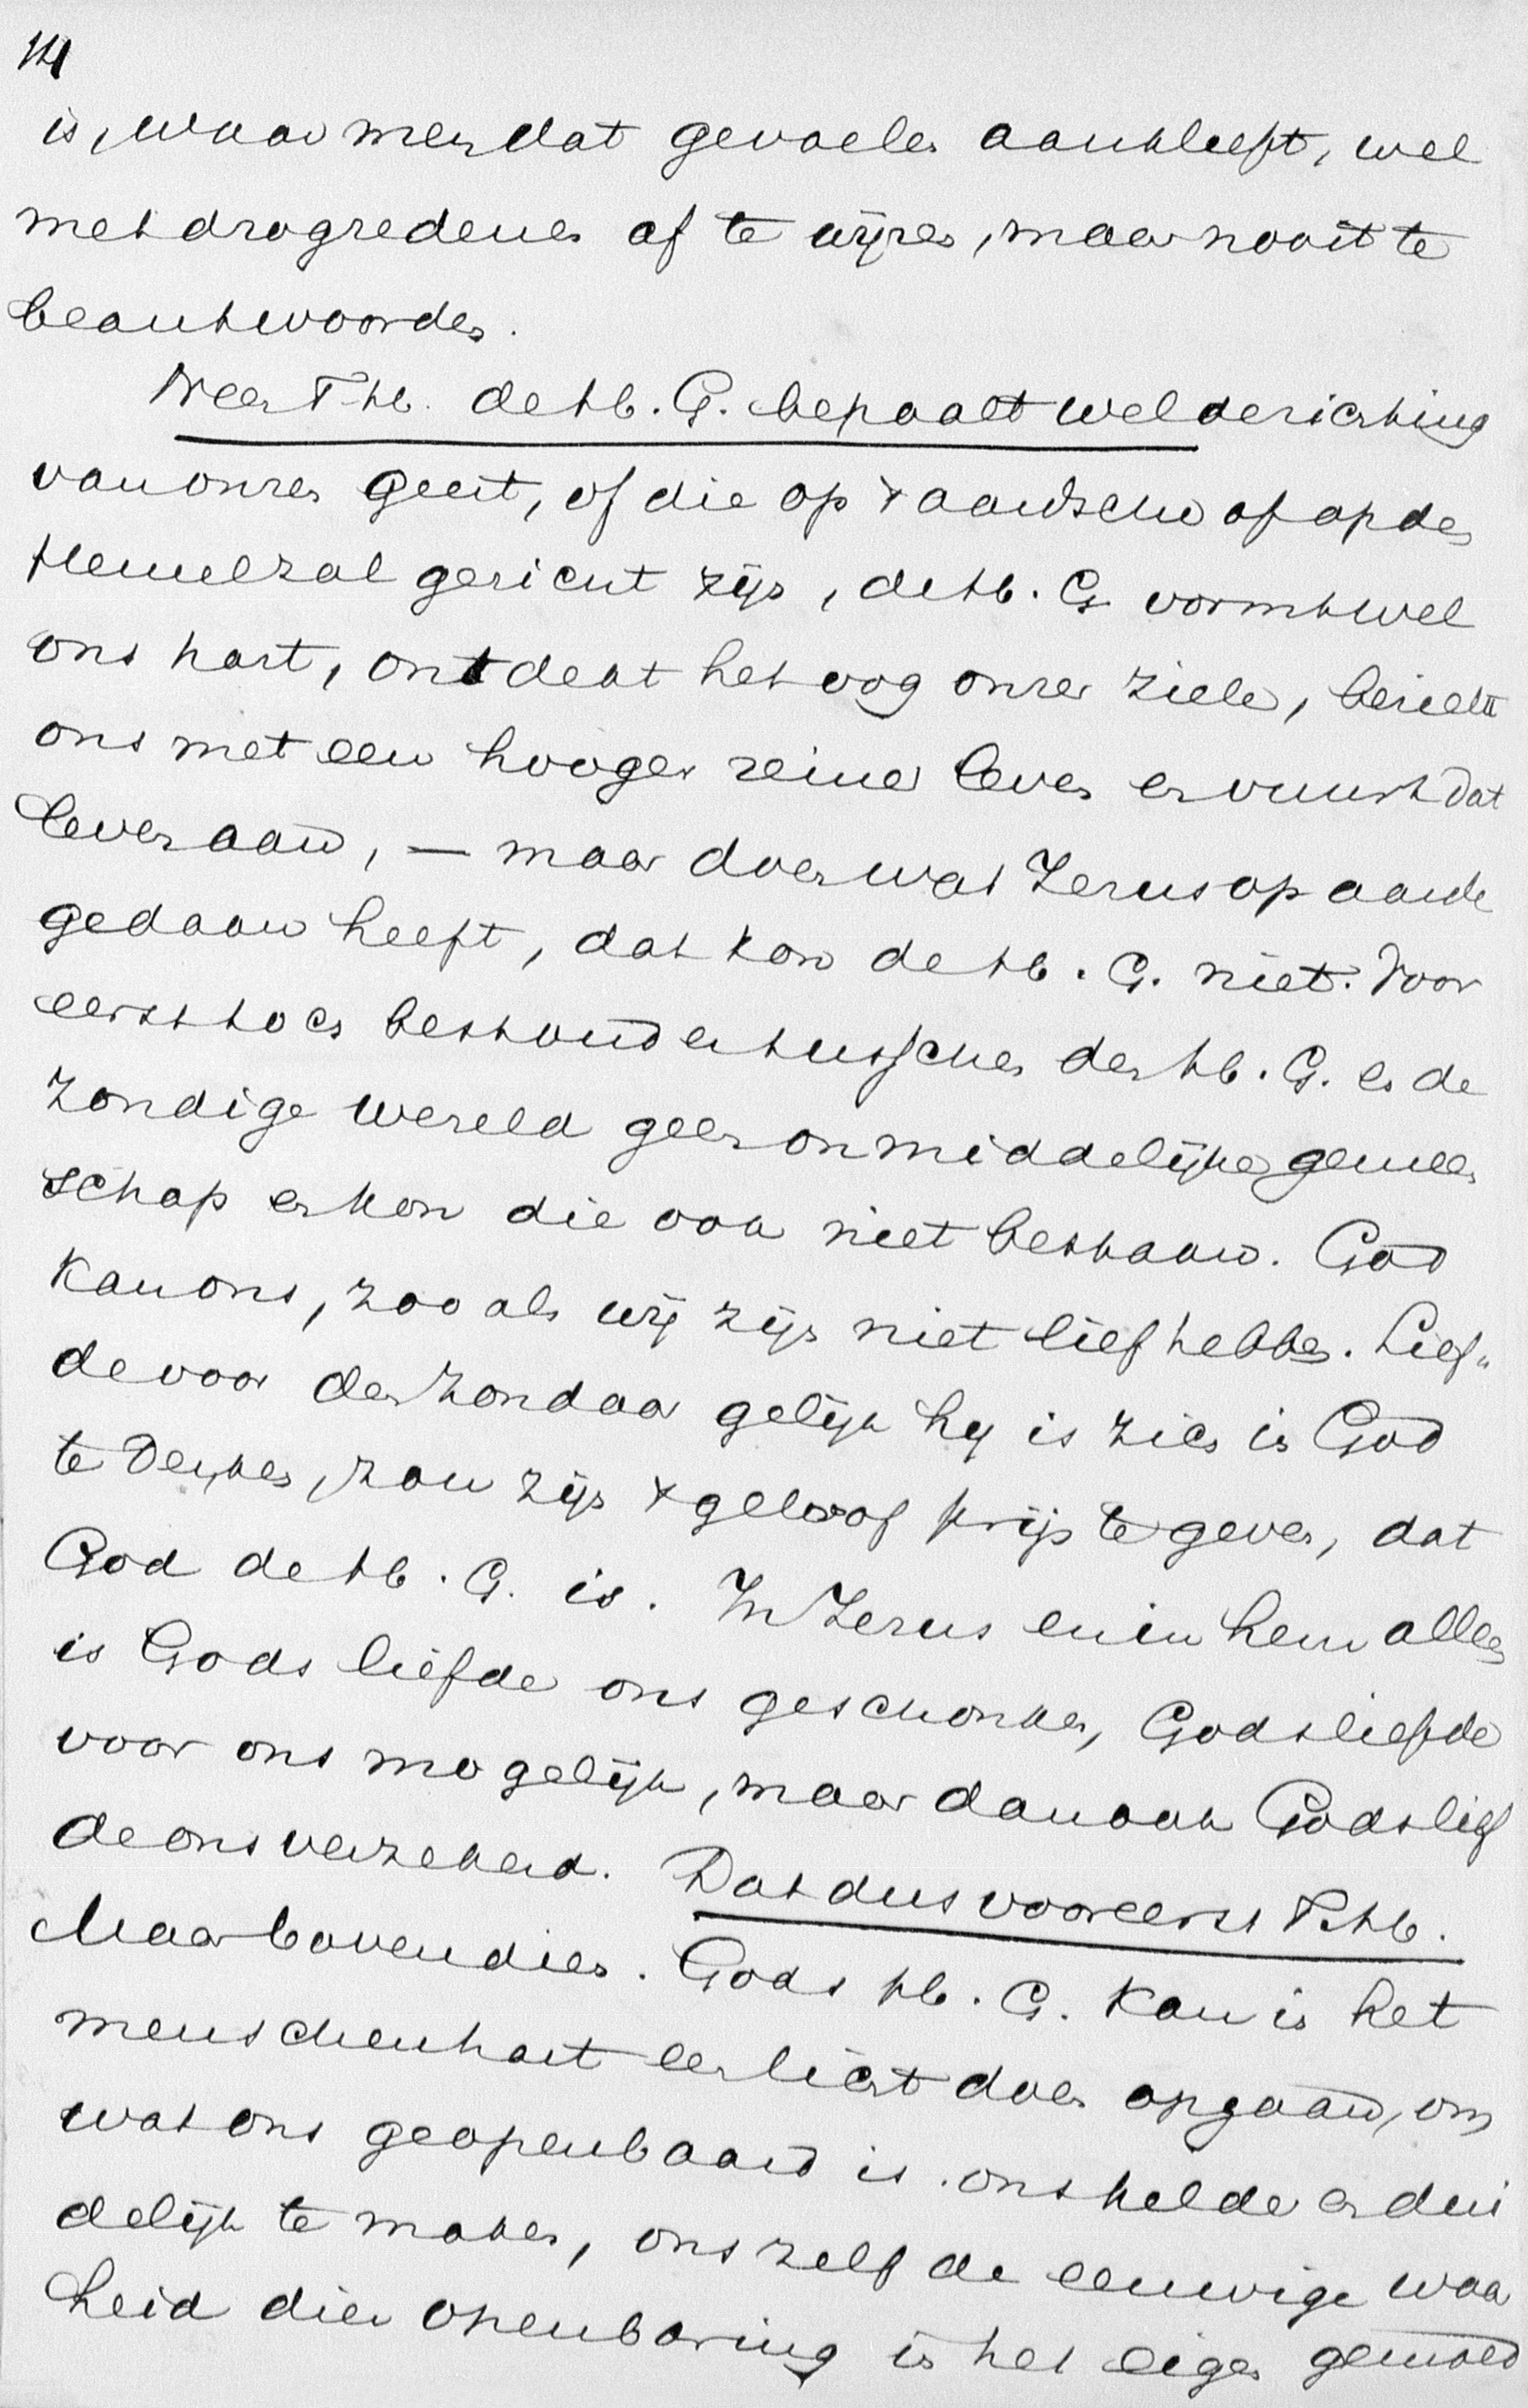 14
is, waar men dat gevoelen aankleeft, wel
met drogredenen af te wijzen, maar nooit te
beantwoorden.
Neen T. H. de H. G. bepaalt wel de richting
van onzen geest, of die op 't aardsche of op den
Hemel zal gericht zijn, de H. G. vormt wel
ons hart, ontdekt het oog onzer ziele, bezielt
ons met een hooger reiner leven en vuurt dat
leven aan, — maar doen wat Jezus op aarde
gedaan heeft, dat kon de H. G. niet. Voor
eerst toch bestond er tusschen den H. G. en de
zondige wereld geen onmiddelijke gemeen
schap en kon die ook niet bestaan. God
kan ons, zoo als wij zijn niet lief hebben. Lief„
de voor den zondaar gelijk hij is zich in God
te denken, zou zijn 't geloof prijs te geven, dat
God de H. G. is. In Jezus en in hem alleen
is Gods liefde ons geschonken, Gods liefde
voor ons mogelijk, maar dan ook Gods lief
de ons verzekerd. Dat dus vooreerst T. H.
Maar bovendien. Gods H. G. kan in het
menschenhart een licht doen opgaan, om
wat ons geopenbaard is ons helder en dui
delijk te maken, ons zelf de eeuwige waar
heid dier openbaring in het eigen gemoed